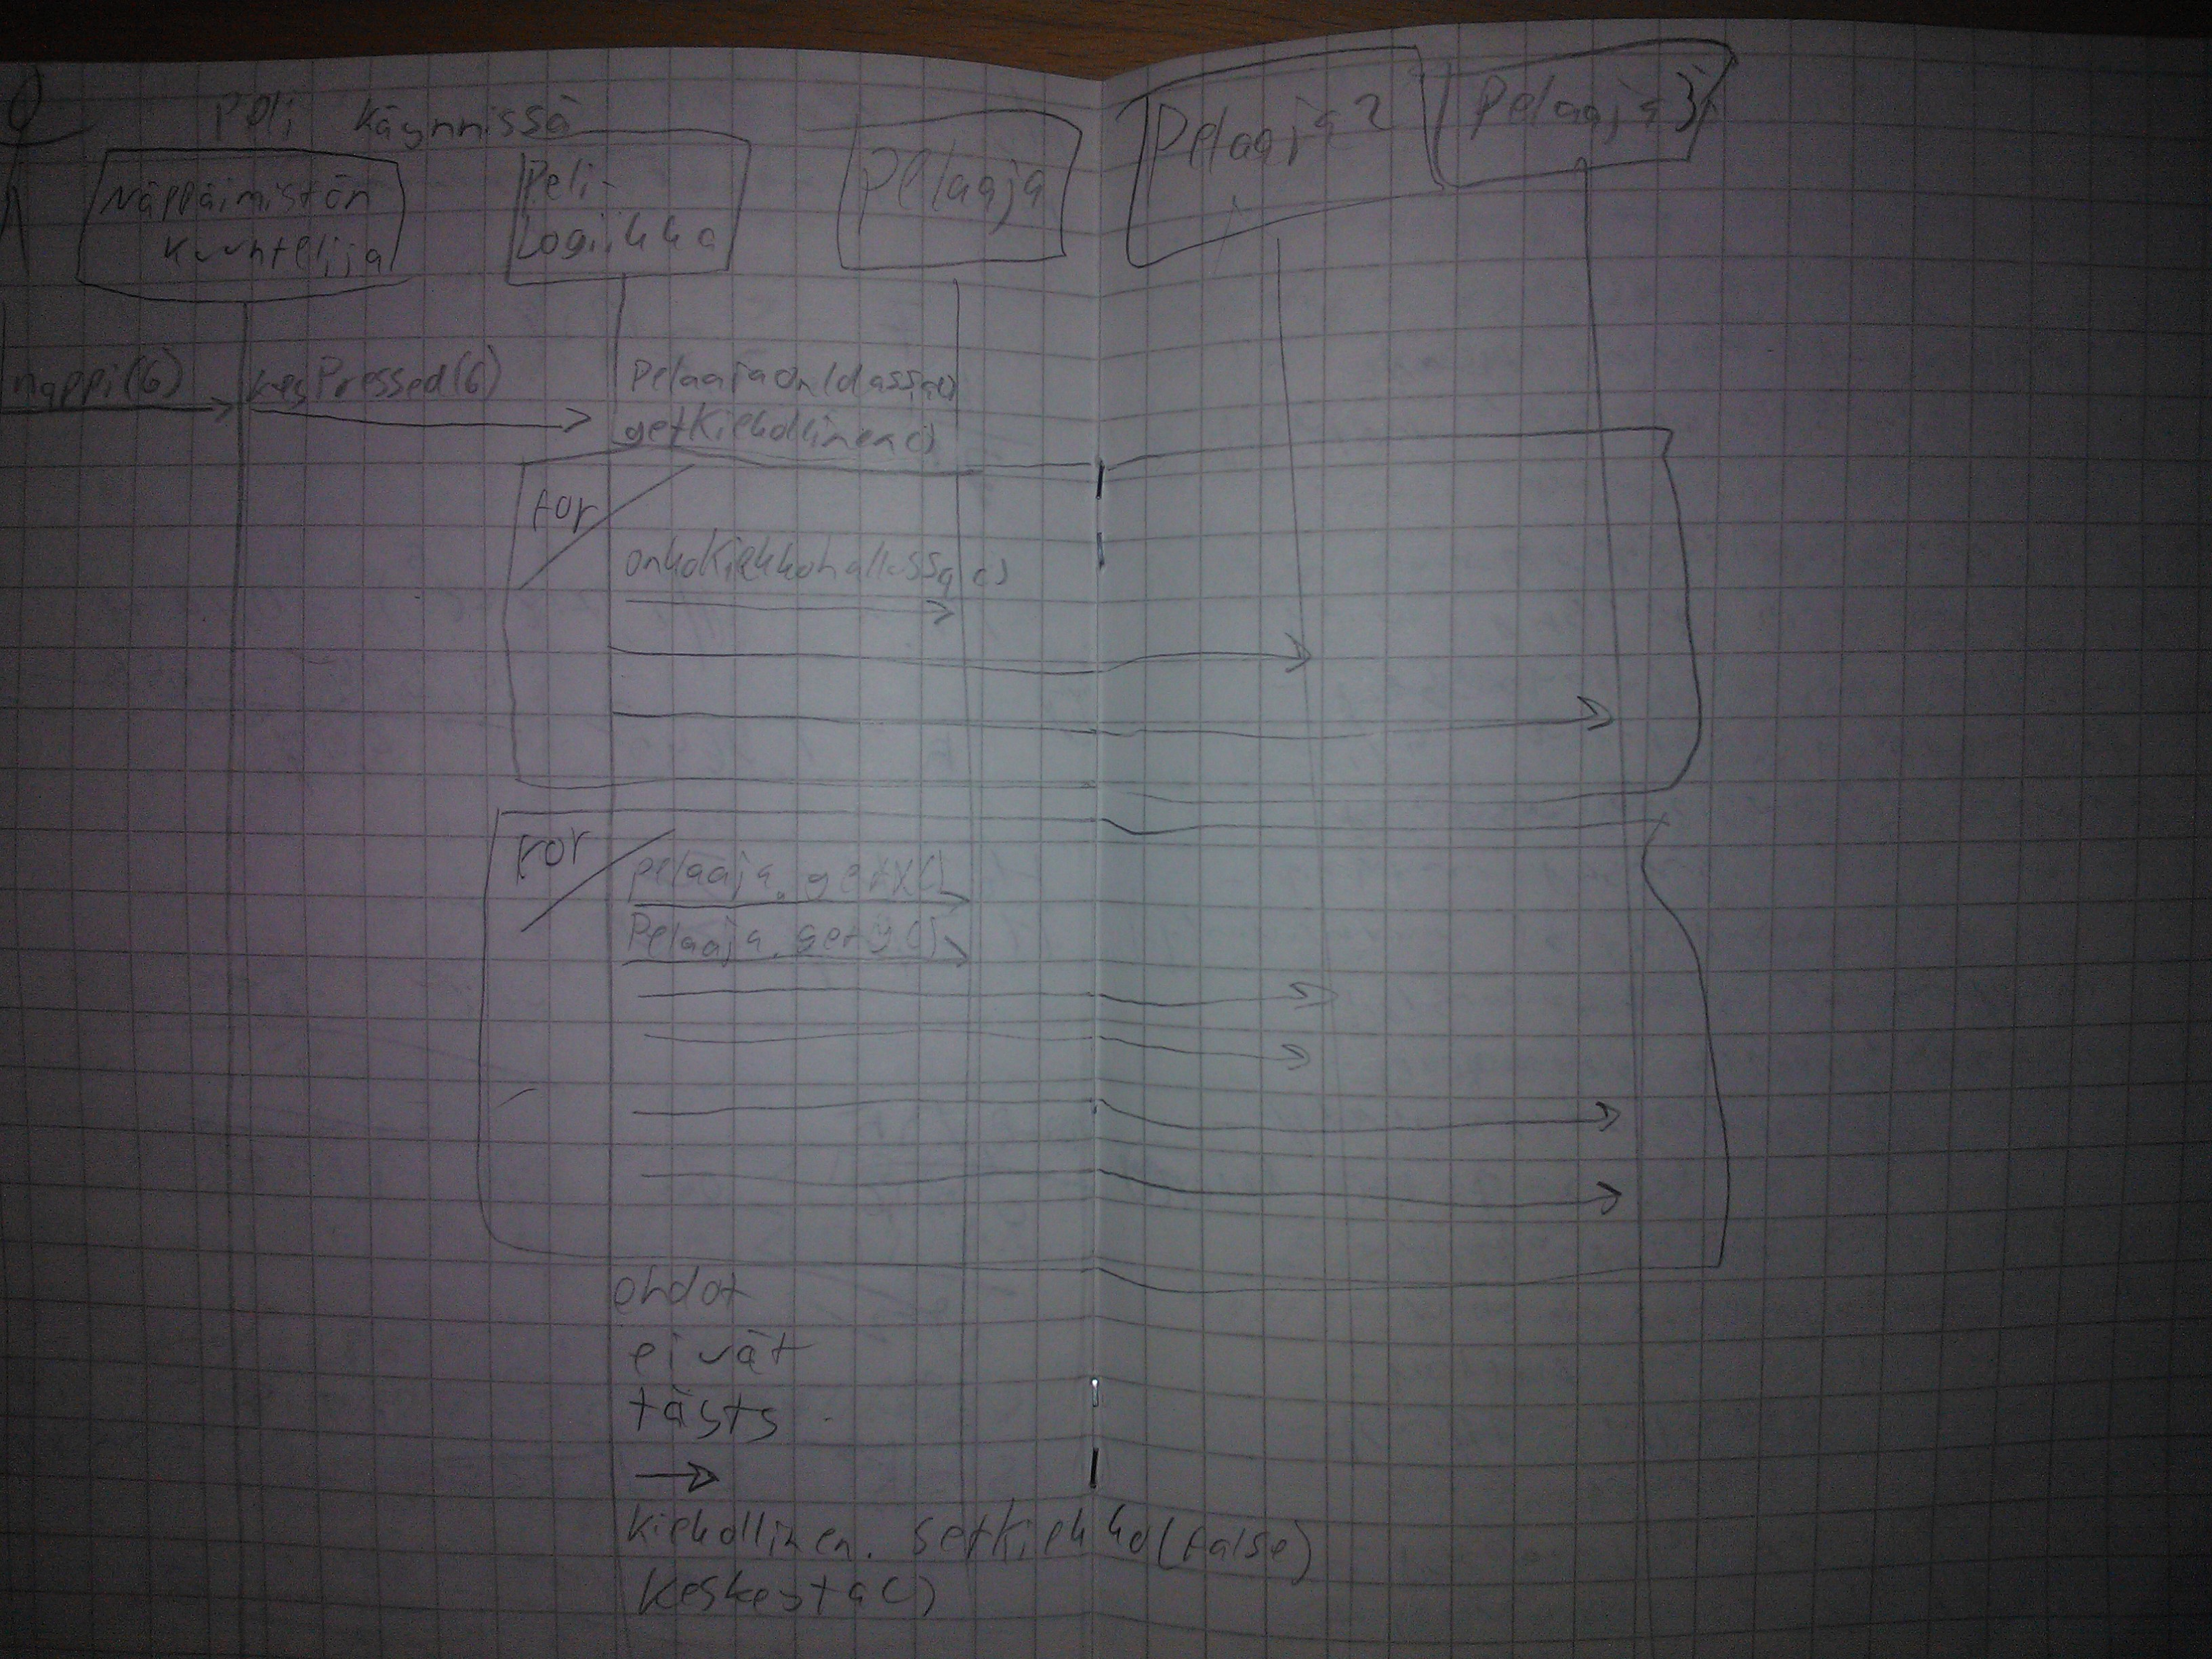 Peli käynnissä
Näppäimistön
kuuntelija
Peli-
Logiikka
Pelaaja
Pelaaja2
Pelaaja3
nappi(6)
keyPressed(6)
getKiekollinen()
for
onkoKiekkohallussa()
for
pelaaja.getX()
Pelaaja.getY()
ehdot
eivät
täyty
kiekollinen.setKiekko(false)
keskeytä()